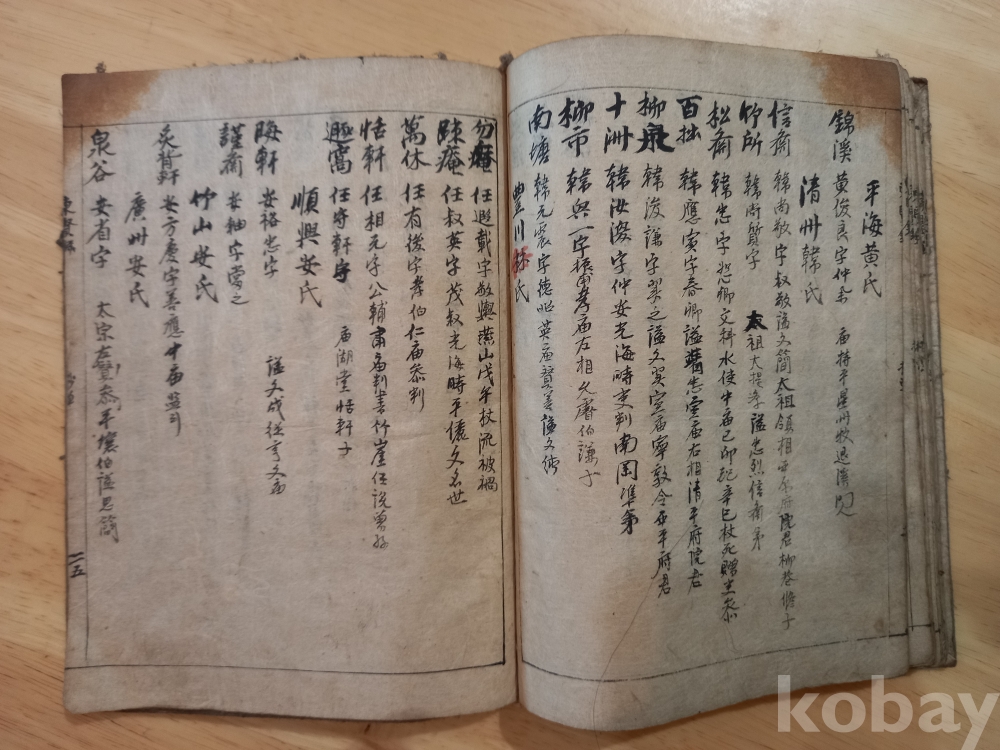 平海黃氏
錦溪 黃俊良字仲擧 庙持平星州牧退溪
清州韓氏
信齋 韓尚敬字叔敬謚文簡太祖領相西原府院君柳巷脩子
竹所 韓尚質字 太祖大提學謚忠烈信齋弟
松齋 韓忠字恕卿文科水使中庙己卯配辛巳杖死贈吏參
百拙 韓應寅字春卿謚忠宣庙右相清平府院君
柳泉 韓浚謙字益之謚文翼宣庙寧敦令西平府君
十洲 韓汝溭字仲安光海時吏判南岡準弟
柳市 韓興一字振甫孝庙左相久庵伯謙子
南塘 韓元震字德昭英庙贊善謚文純
豊川任氏
任遐載字敬輿燕山戊午杖流被禍
任叔英字茂叔光海時平儀文名世
萬休 任有後字孝伯仁庙參判
恬軒 任相元字公輔肅庙判書竹崖任說曾孫
任守軒字 庙湖堂恬軒子
順興安氏
晦軒 安裕忠字 謚文成從享文庙
謹齋 安軸字當之
竹山安氏
安方慶字善應中庙監司
廣州安氏
泉谷 安省字 太宗左贊參平壤伯謚思簡
一五
kobay